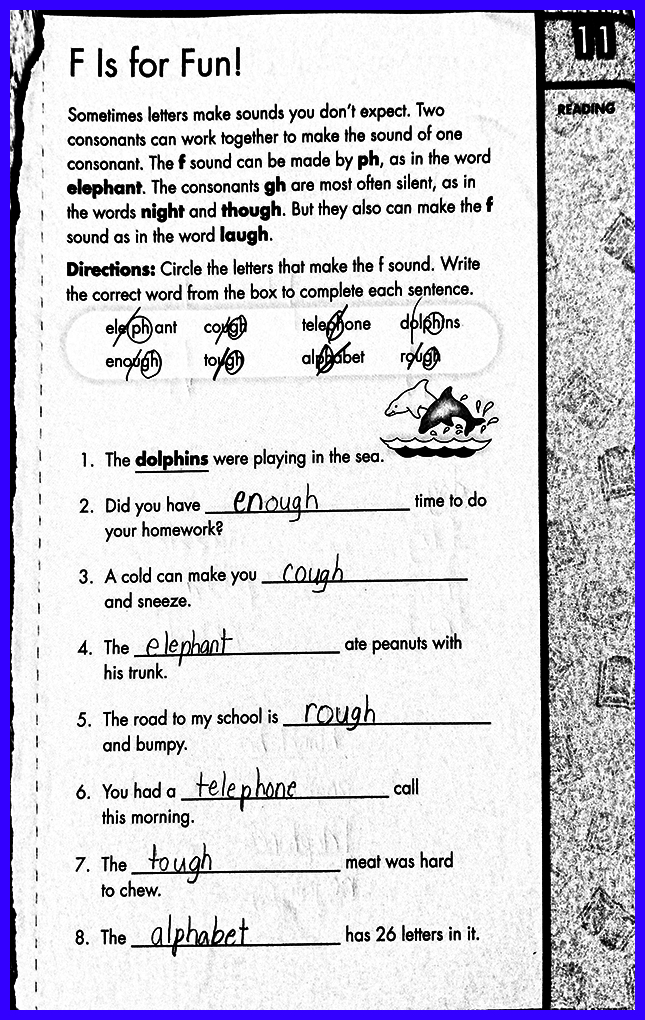 F Is for Fun!
11
READING
Sometimes letters make sounds you don't expect. Two
consonants can work together to make the sound of one
consonant. The f sound can be made by ph, as in the word
elephant. The consonants gh are most often silent, as in
the words night and though. But they also can make the f
sound as in the word laugh.
Directions: Circle the letters that make the f sound. Write
the correct word from the box to complete each sentence.
elephant cough telephone dolphins
enough tough alphabet rough
1. The dolphins were playing in the sea.
2. Did you have enough time to do
your homework?
3. A cold can make you cough
and sneeze.
4. The elephant ate peanuts with
his trunk.
5. The road to my school is rough
and bumpy.
6. You had a telephone call
this morning.
7. The tough meat was hard
to chew.
8. The alphabet has 26 letters in it.